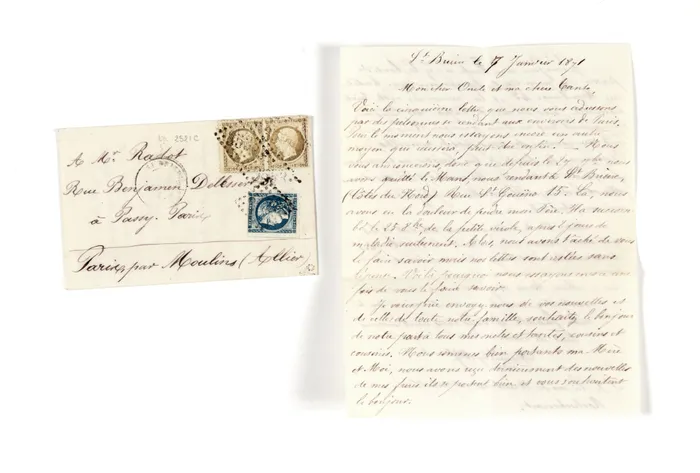 2521 C
A Mr. Rabot
Rue Benjamin Delessert
à Passy. Paris
Paris, par Moulins (Allier)
St Brieuc le 7 Janvier 1871
Mon cher Oncle et ma chère Tante,
Voici la cinquième lettre que nous vous adressons
par des personnes se rendant aux environs de Paris.
En le moment nous essayons encore un autre
moyen qui réussira, peut être entre! Nous
vous annoncions, donc que depuis le nous
avons quitté le Mans, nous rendant à St Brieuc,
(Côtes du Nord) Rue St Gouéno 15. Là, nous
avons eu la douleur de perdre mon Père. Il a succom
bé le 23 8bre de la petite vérole, après 6 jours de
maladie seulement. nous avons tâché de vous
le faire savoir mais nos lettres sont restées sans
nous essayons encore une
fois de vous le faire savoir.
Je vous prie envoyez nous de vos nouvelles et
de celles de toute notre famille, souhaitez le bonjour
de notre part à tous mes oncles et tantes, cousins et
cousines. Nous sommes bien portants ma Mère
et Moi, nous avons reçu dernièrement des nouvelles
de mes frères ils se portent bien et vous souhaitent
le bonjour.